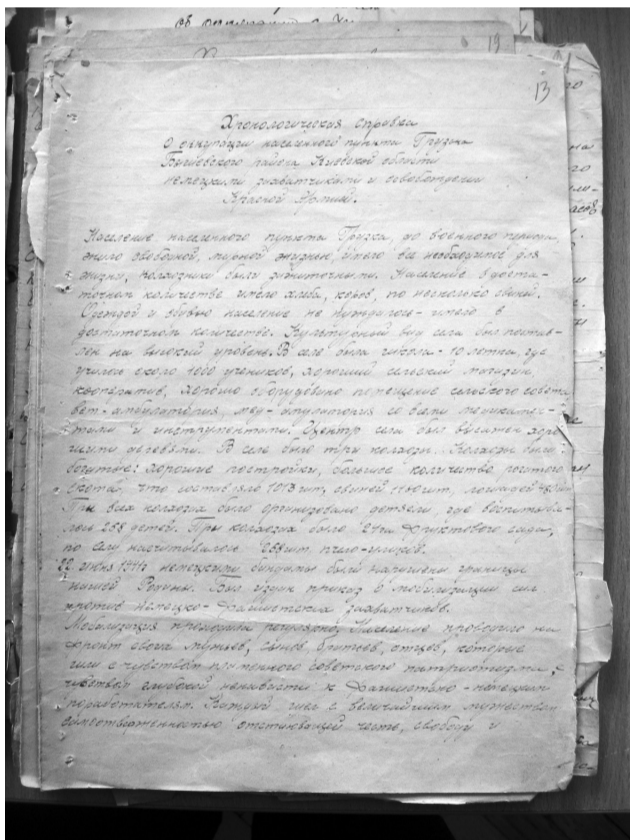 13
19
Хронологическая справка
О оккупации населенного пункта Грузка
района Киевской области
немецкими захватчиками и освобождении
Красной Армией.
Население населенного пункта Грузка, до военного периода,
жило свободной, мирной жизнью, имело все необходимое для
жизни, колхозники были зажиточными. Население в доста-
точном количестве имело хлеба, коров, по несколько свиней.
Одеждой и обувью население не нуждалось - имело в
достаточном количестве. Культурный вид села был постав-
лен на высокий уровень. В селе была школа - 10 летка, где
училось около 1000 учеников, хороший сельский магазин,
кооператив, хорошо оборудовано помещение сельского совета,
вет-амбулатория, мед-амбулатория со всеми медикамен-
тами и инструментами. Центр села был высажен хоро-
шими деревьями. В селе было три колхозы. Колхозы были
богатые: хорошие постройки, большое количество рогатого
скота, что составляло 1013 шт, свиней шт, лошадей
При всех колхозах было организовано детясли, где воспитыва-
лось 288 детей. При колхозах было фруктового сада,
по селу насчитывалось 288 шт пчело-ульев.
22 июня 1941г немецкими бандами были нарушены границы
нашей Родины. Был издан приказ о мобилизации сил
против немецко-фашистских захватчиков.
Мобилизация проходила регулярно. Население проводило на
фронт своих мужьев, сынов, братьев, отцов, которые
шли с чувством пламенного советского патриотизма, с
чувством глубокой ненависти к фашистско-немецким
поработителям. Каждый шел с величайшим мужеством
самоотверженностью отстаивающей честь, свободу и